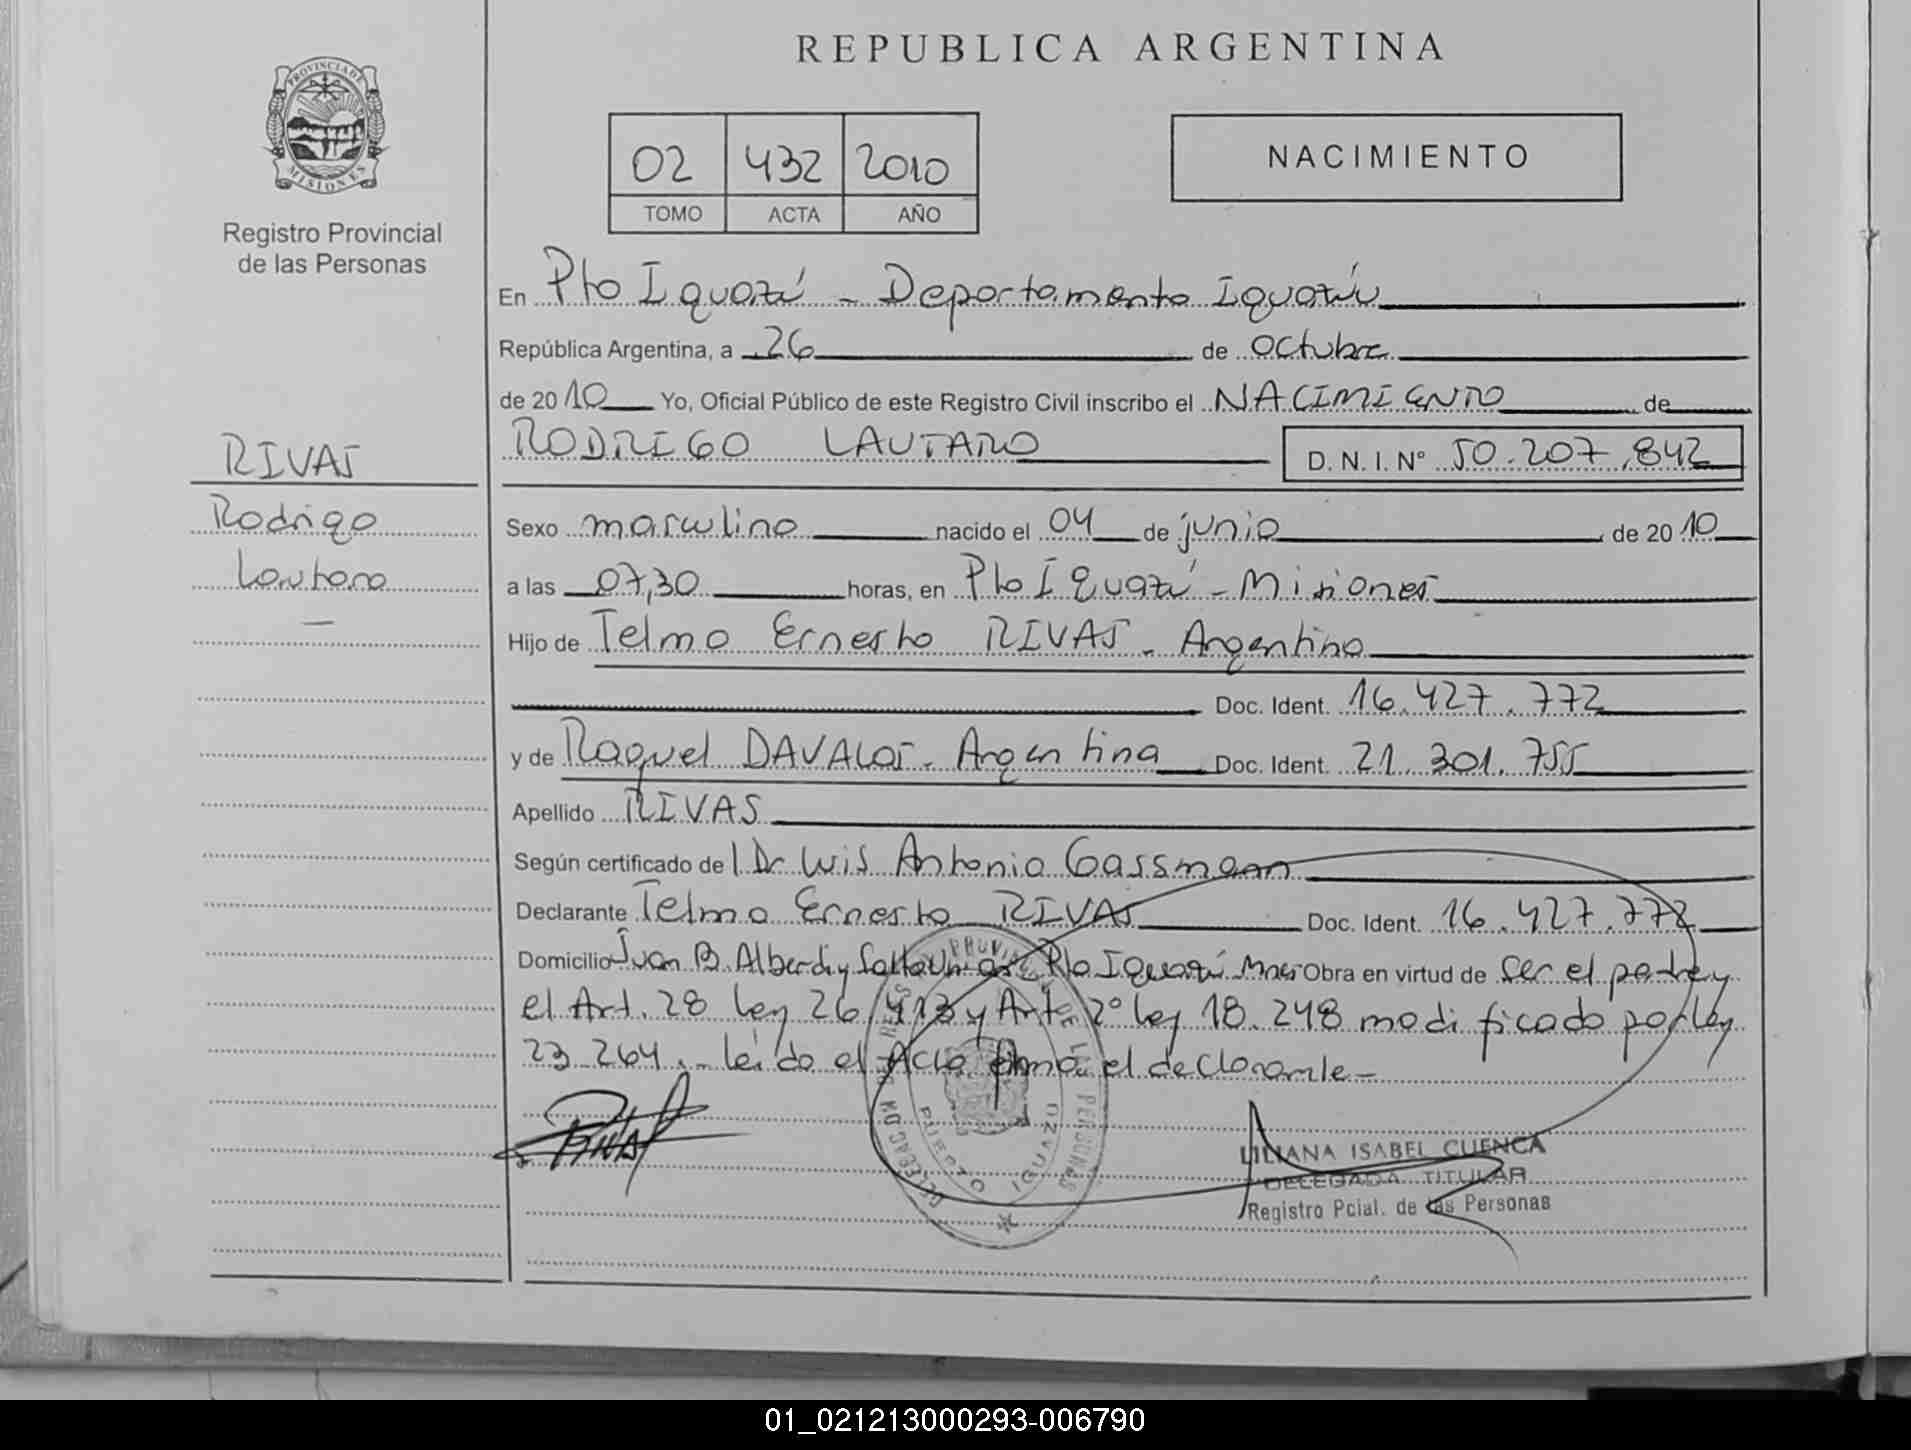 REPUBLICA ARGENTINA
PROVINCIA DE
MISIONES
Registro Provincial
de las Personas
02 432 2010
TOMO ACTA AÑO
NACIMIENTO
En Pto Iguazú - Departamento Iguazú
República Argentina, a 26 de octubre
de 2010 Yo, Oficial Público de este Registro Civil inscribo el NACIMIENTO de
RODRIGO LAUTARO D. N. I. Nº 50.207.842
RIVAS
Rodrigo
Lautaro
Sexo masculino nacido el 04 de junio de 2010
a las 07,30 horas, en Pto Iguazú - Misiones
Hijo de Telmo Ernesto RIVAS - Argentino
Doc. Ident. 16.427.772
y de Raquel DAVALOS - Argentina Doc. Ident. 21.301.755
Apellido RIVAS
Según certificado de l Dr Luis Antonio Gassmann
Declarante Telmo Ernesto RIVAS Doc. Ident. 16.427.772
Domicilio Juan B. Alberdi y Pto Iguazú Mnes Obra en virtud de ser el padre y
el Art. 28 ley 26.413 y Art 2º ley 18.248 modificado por ley
23.264.- leído el Acta firma el declarante -
RIVAS
PUERTO IGUAZU
LILIANA ISABEL CUENCA
DELEGADA TITULAR
Registro Pcial. de las Personas
01_021213000293-006790